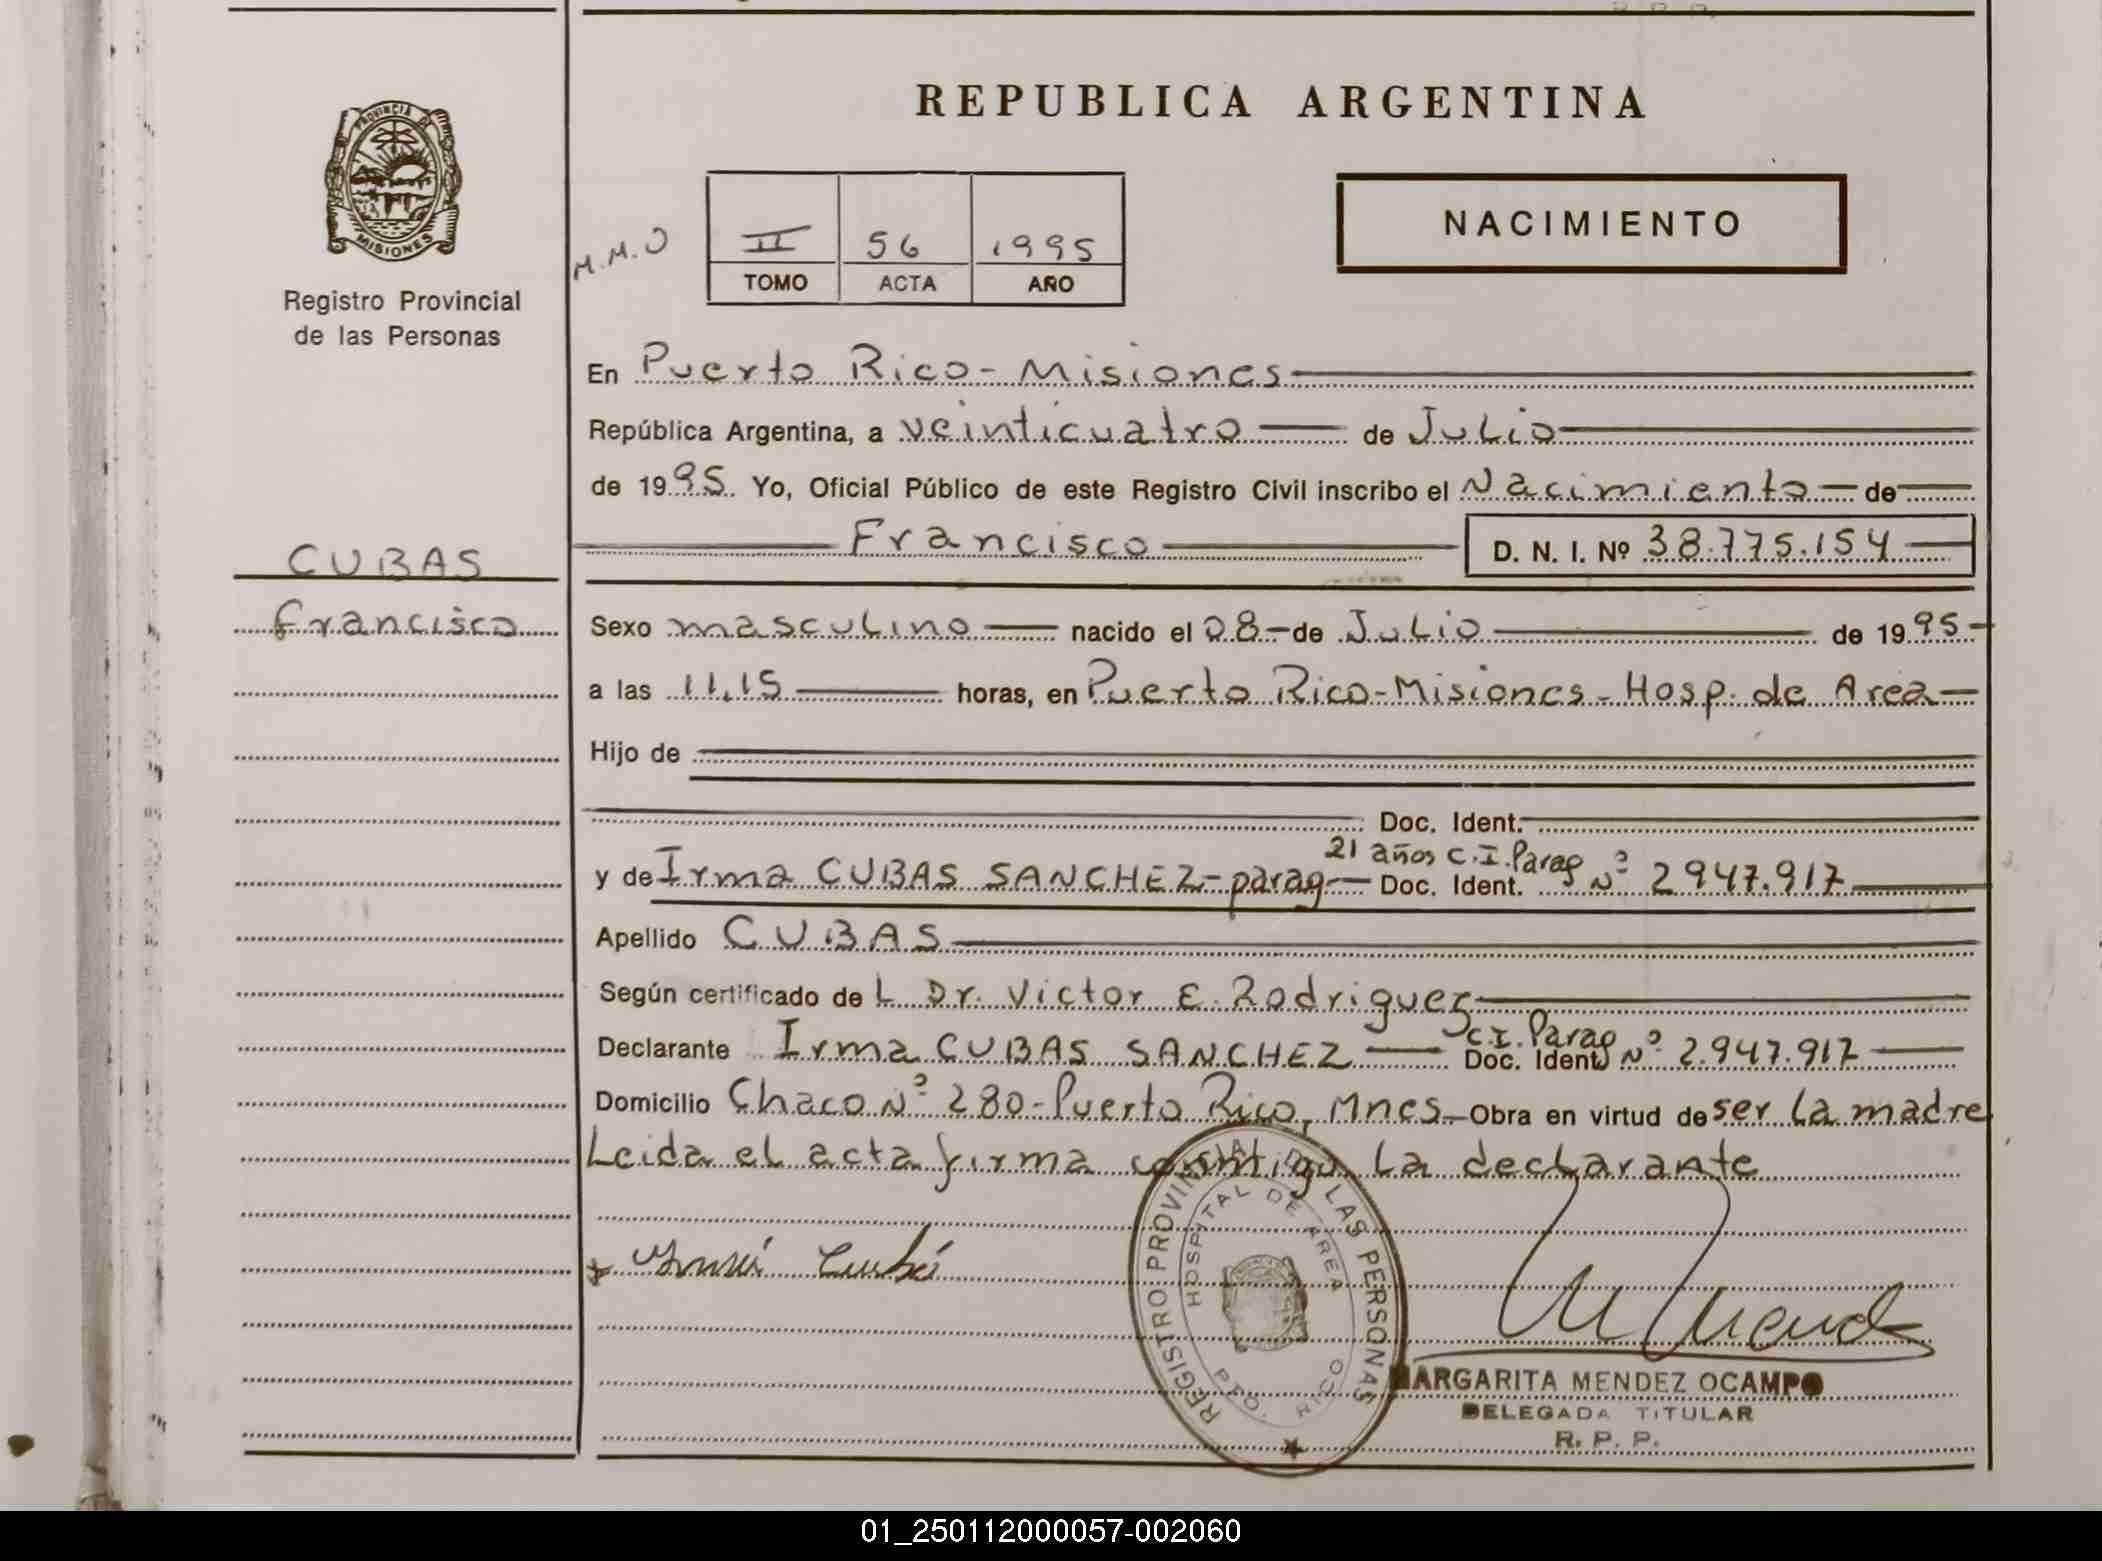 REPUBLICA ARGENTINA
PROVINCIA DE
MISIONES
Registro Provincial
de las Personas
M.M.O
II 56 1995
TOMO ACTA AÑO
NACIMIENTO
En Puerto Rico - Misiones
República Argentina, a veinticuatro de Julio
de 1995. Yo, Oficial Público de este Registro Civil inscribo el Nacimiento de
Francisco D. N. I. Nº 38.775.154
CUBAS
Francisco
Sexo masculino nacido el 08 - de Julio de 1995 -
a las 11,15 horas, en Puerto Rico - Misiones - Hosp. de Area -
Hijo de
Doc. Ident.
21 años C.I. Parag
y de Irma CUBAS SANCHEZ - parag - Doc. Ident. Nº 2947.917
Apellido CUBAS
Según certificado de L Dr. Victor E. Rodriguez
Declarante Irma CUBAS SANCHEZ C.I. Parag Doc. Ident Nº 2.947.917
Domicilio Chaco Nº 280 - Puerto Rico, Mnes. Obra en virtud de ser la madre
Leida el acta firma conmigo la declarante
REGISTRO PROVINCIAL DE LAS PERSONAS
HOSPITAL DE AREA
PTO. RICO
MARGARITA MENDEZ OCAMPO
DELEGADA TITULAR
R. P. P.
01_250112000057-002060